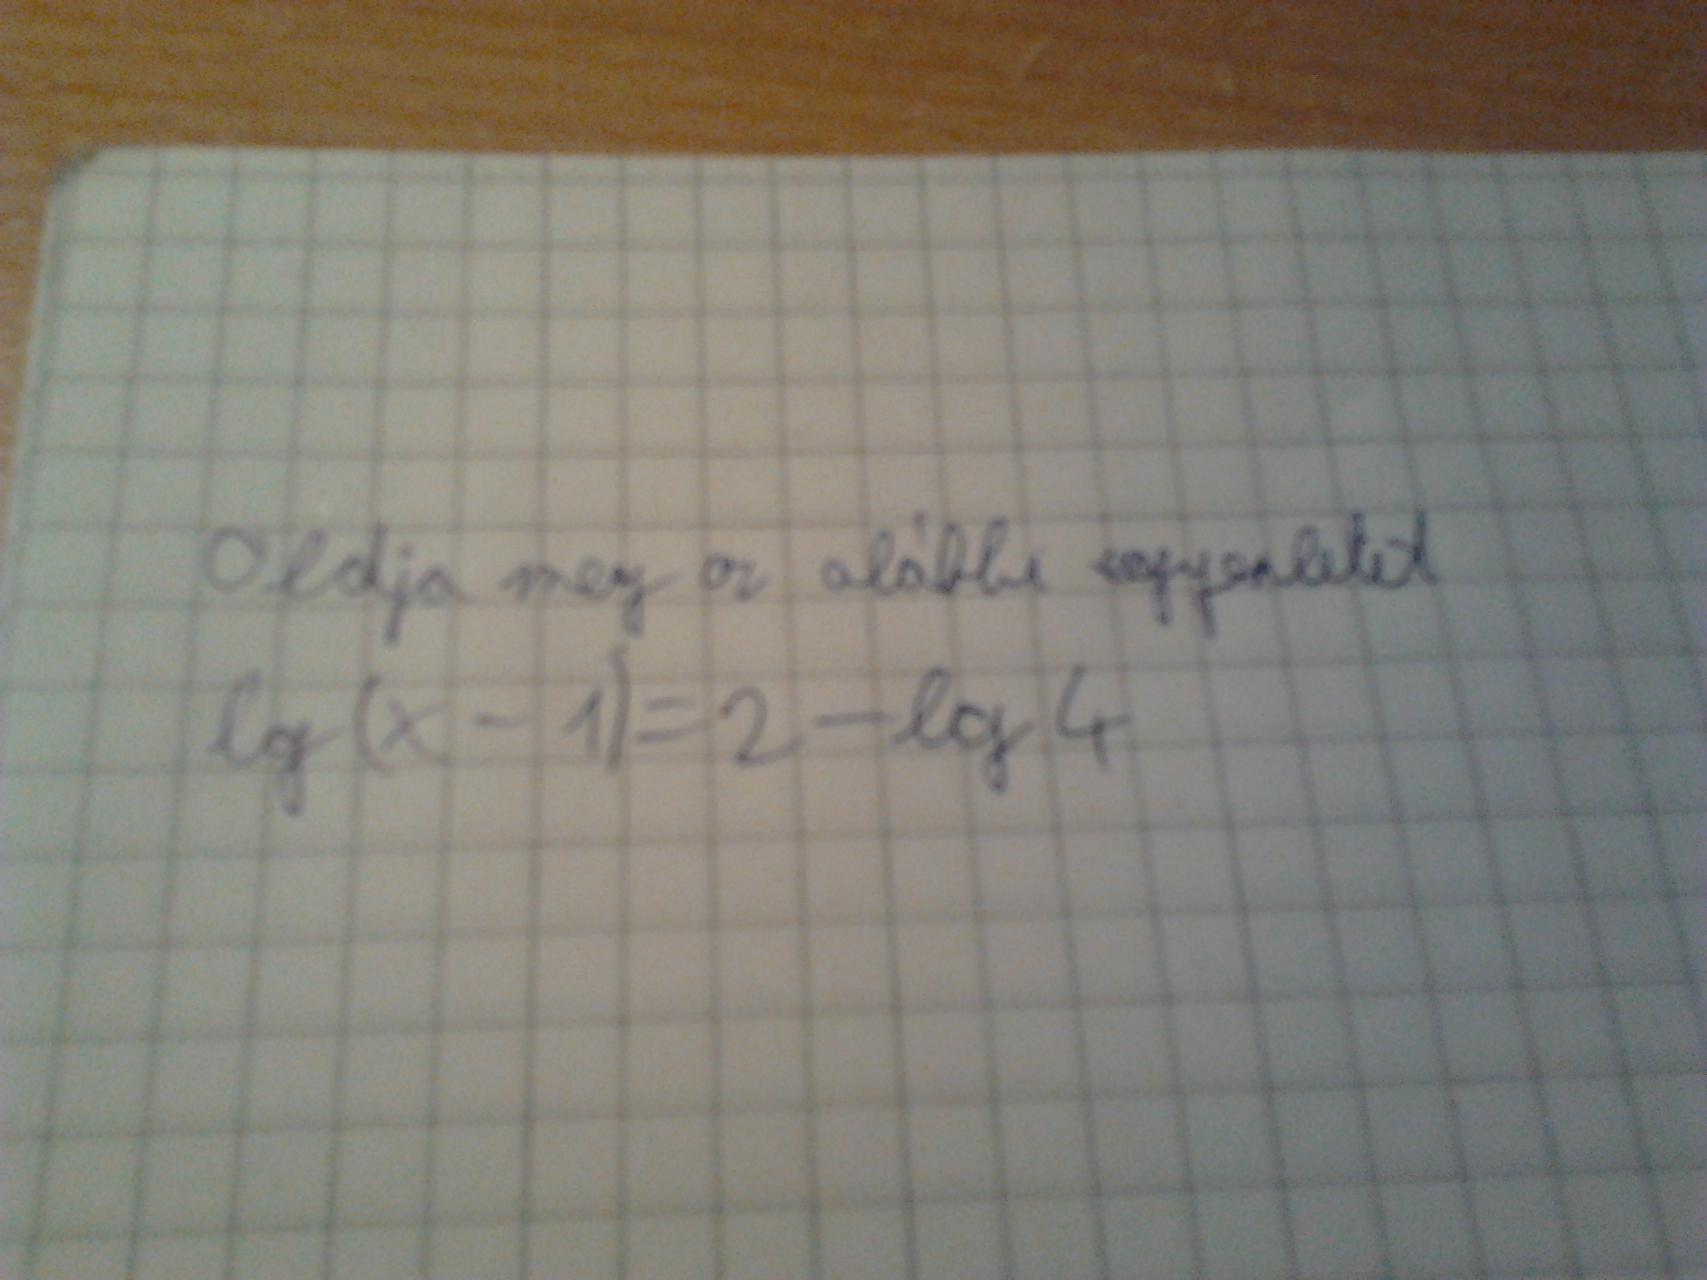 Oldja meg az alábbi egyenletet
lg(x-1)=2-lg4